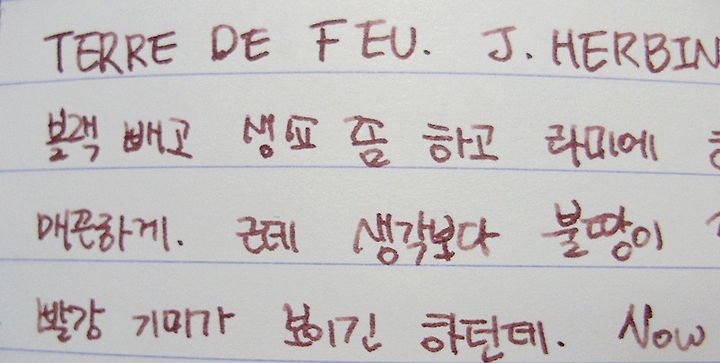 TERRE DE FEU. J. HERBIN
블랙 빼고 생쇼 좀 하고 라미에
매끈하게. 근데 생각보다 불땅이
빨강 기미가 보이긴 하던데. Now